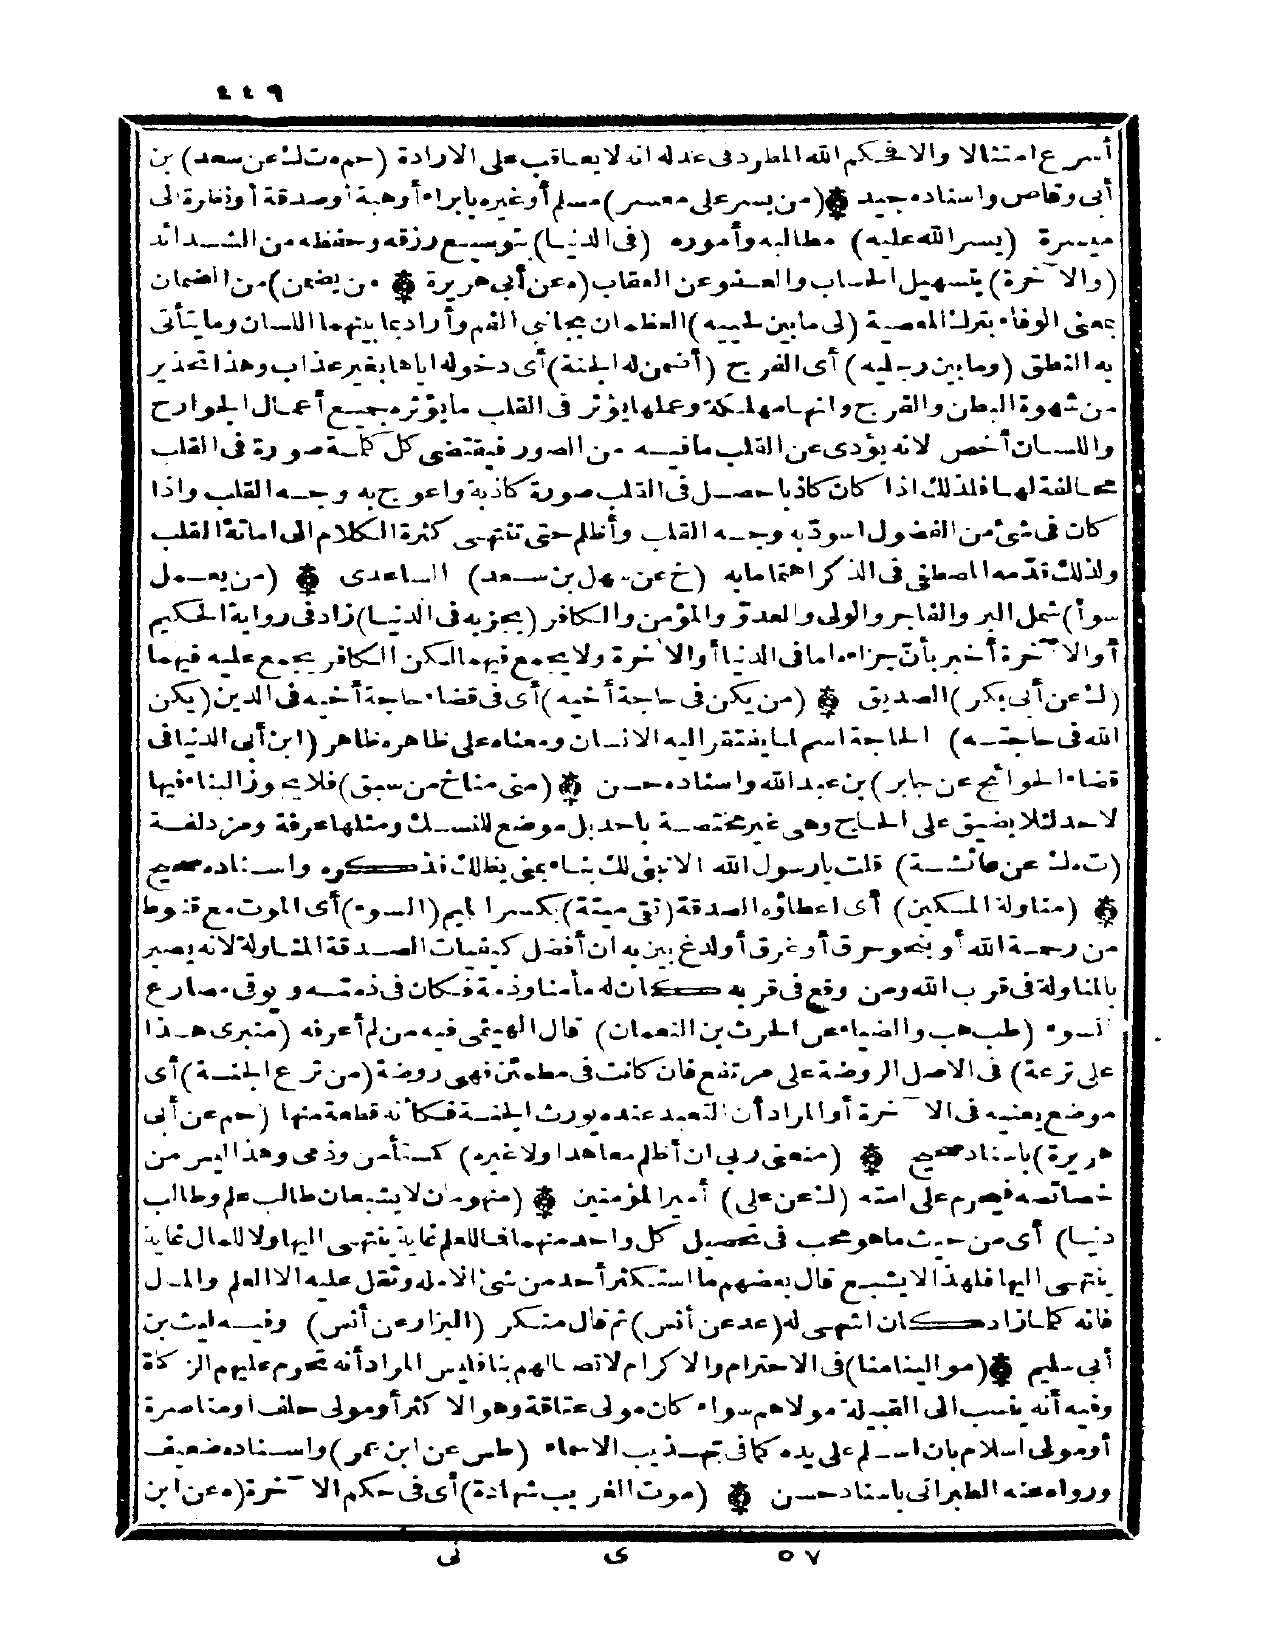 ٤٤٩
أسرع امتثالا والا فحكم الله المطرد فى عدله انه لا يعاقب على الارادة (حم ت ك عن سعد) بن
أبى وقاص واسناده جيد (من يسر على معسر) مسلم أو غيره بابراء أو هبة أو صدقة أو نظرة الى
ميسرة (يسر الله عليه) مطالبه وأموره (فى الدنيا) بتوسيع رزقه وحفظه من الشدائد
(والآخرة) بتسهيل الحساب والعفو عن العقاب (ه عن أبى هريرة) (من يضمن) من الضمان
بمعنى الوفاء بترك المعصية (لى ما بين لحييه) العظمان بجانبى الفم وأراد بما بينهما اللسان وما يتأتى
به النطق (وما بين رجليه) أى الفرج (أضمن له الجنة) أى دخوله اياها بغير عذاب وهذا تحذير
من شهوة البطن والفرج وانها مهلكة وعملها يؤثر فى القلب ما يؤثره جميع أعمال الجوارح
واللسان أخص لانه يؤدى عن القلب ما فيه من الصور فيقتضى كل كلمة صورة فى القلب
مخالفة لها فلذلك اذا كان كاذبا حصل فى القلب صورة كاذبة واعوج به وجه القلب واذا
كان فى شئ من الفضول اسودّ به وجه القلب وأظلم حتى تنتهى كثرة الكلام الى اماتة القلب
ولذلك قدمه المصطفى فى الذكر اهتماما به (خ عن سهل بن سعد) الساعدى (من يعمل
سوأ) شمل البر والفاجر والولى والعدوّ والمؤمن والكافر (يجز به فى الدنيا) زاد فى رواية الحكيم
أو الآخرة أخبر بأنّ جزاءه اما فى الدنيا أو الآخرة ولا يجمع فيهما لكن الكافر يجمع عليه فيهما
(ك عن أبى بكر) الصديق (من يكن فى حاجة أخيه) أى فى قضاء حاجة أخيه فى الدين (يكن
الله فى حاجته) الحاجة اسم لما يفتقر اليه الانسان ومعناه على ظاهره ظاهر (ابن أبى الدنيا فى
قضاء الحوائج عن جابر) بن عبد الله واسناده حسن (منى مناخ من سبق) فلا يجوز البناء فيها
لاحد لئلا يضيق على الحاج وهى غير مختصة باحد بل موضع للنسك ومثلها عرفة ومزدلفة
(ت ه ك عن عائشة) قلت يا رسول الله الا نبنى لك بناء بمنى يظلك فذكره واسناده صحيح
(مناولة المسكين) أى اعطاؤه الصدقة (تقى ميتة) بكسر الميم (السوء) أى الموت مع قنوط
من رحمة الله أو بنحو حرق أو غرق أو لدغ بين به ان أفضل كيفيات الصدقة المناولة لانه يصير
بالمناولة فى قرب الله ومن وقع فى قربه كان له مأمنا وذمة فكان فى ذمته ويوقى مصارع
السوء (طب هب والضياء عن الحرث بن النعمان) قال الهيثمى فيه من لم أعرفه (منبرى هذا
على ترعة) فى الاصل الروضة على مرتفع فان كانت فى مطمئن فهى روضة (من ترع الجنة) أى
موضع بعينه فى الآخرة أو المراد أن التعبد عنده يورث الجنة فكأنه قطعة منها (حم عن أبى
هريرة) باسناد صحيح (منعنى ربى ان أظلم معاهدا ولا غيره) كمستأمن وذمى وهذا ليس من
خصائصه فيحرم على امته (ك عن على) أمير المؤمنين (منهومان لا يشبعان طالب علم وطالب
دنيا) أى من حيث ما هو محب فى تحصيل كل واحد منهما فاللعلم غاية ينتهى اليها ولا للمال غاية
ينتهى اليها فلهذا لا يشبع قال بعضهم ما استكثر أحد من شئ الا مله وثقل عليه الا العلم والمال
فانه كلما زاد كان اشهى له (عد عن أنس) ثم قال منكر (البزار عن أنس) وفيه ليث بن
أبى سليم (موالينا منا) فى الاحترام والاكرام لاتصالهم بنا فليس المراد أنه تحرم عليهم الزكاة
وفيه أنه ينسب الى القبيلة مولاهم سواء كان مولى عتاقة وهو الاكثر أو مولى حلف أو مناصرة
أو مولى اسلام بان اسلم على يده كما فى تهذيب الاسماء (طس عن ابن عمر) واسناده ضعيف
ورواه عنه الطبرانى باسناد حسن (موت الغريب شهادة) أى فى حكم الآخرة (ه عن ابن
٥٧ ى نى